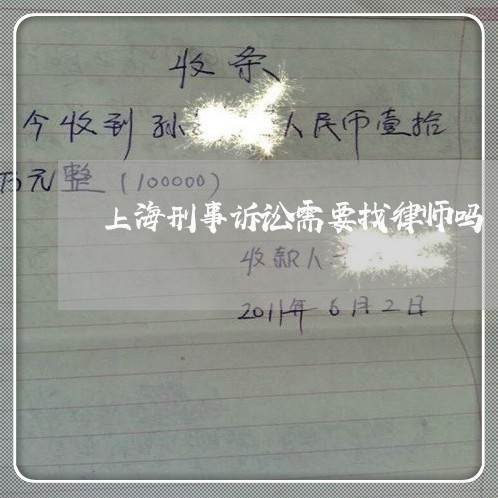 收条
今收到孙 人民币壹拾
万元整（100000）
上海刑事诉讼需要找律师吗
收款人
2011年6月2日